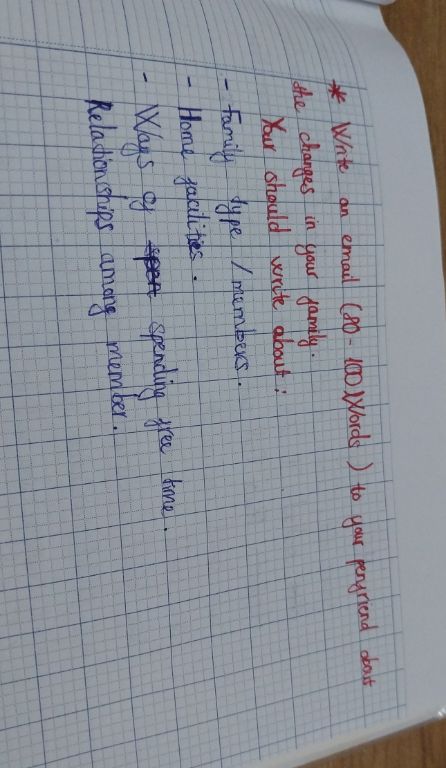 * Write an email (80 - 100) Words) to your penfriend about
the changes in your family.
Your should write about:
- Family type / members.
- Home facilities.
- Ways of spending free time.
Relationships among member.